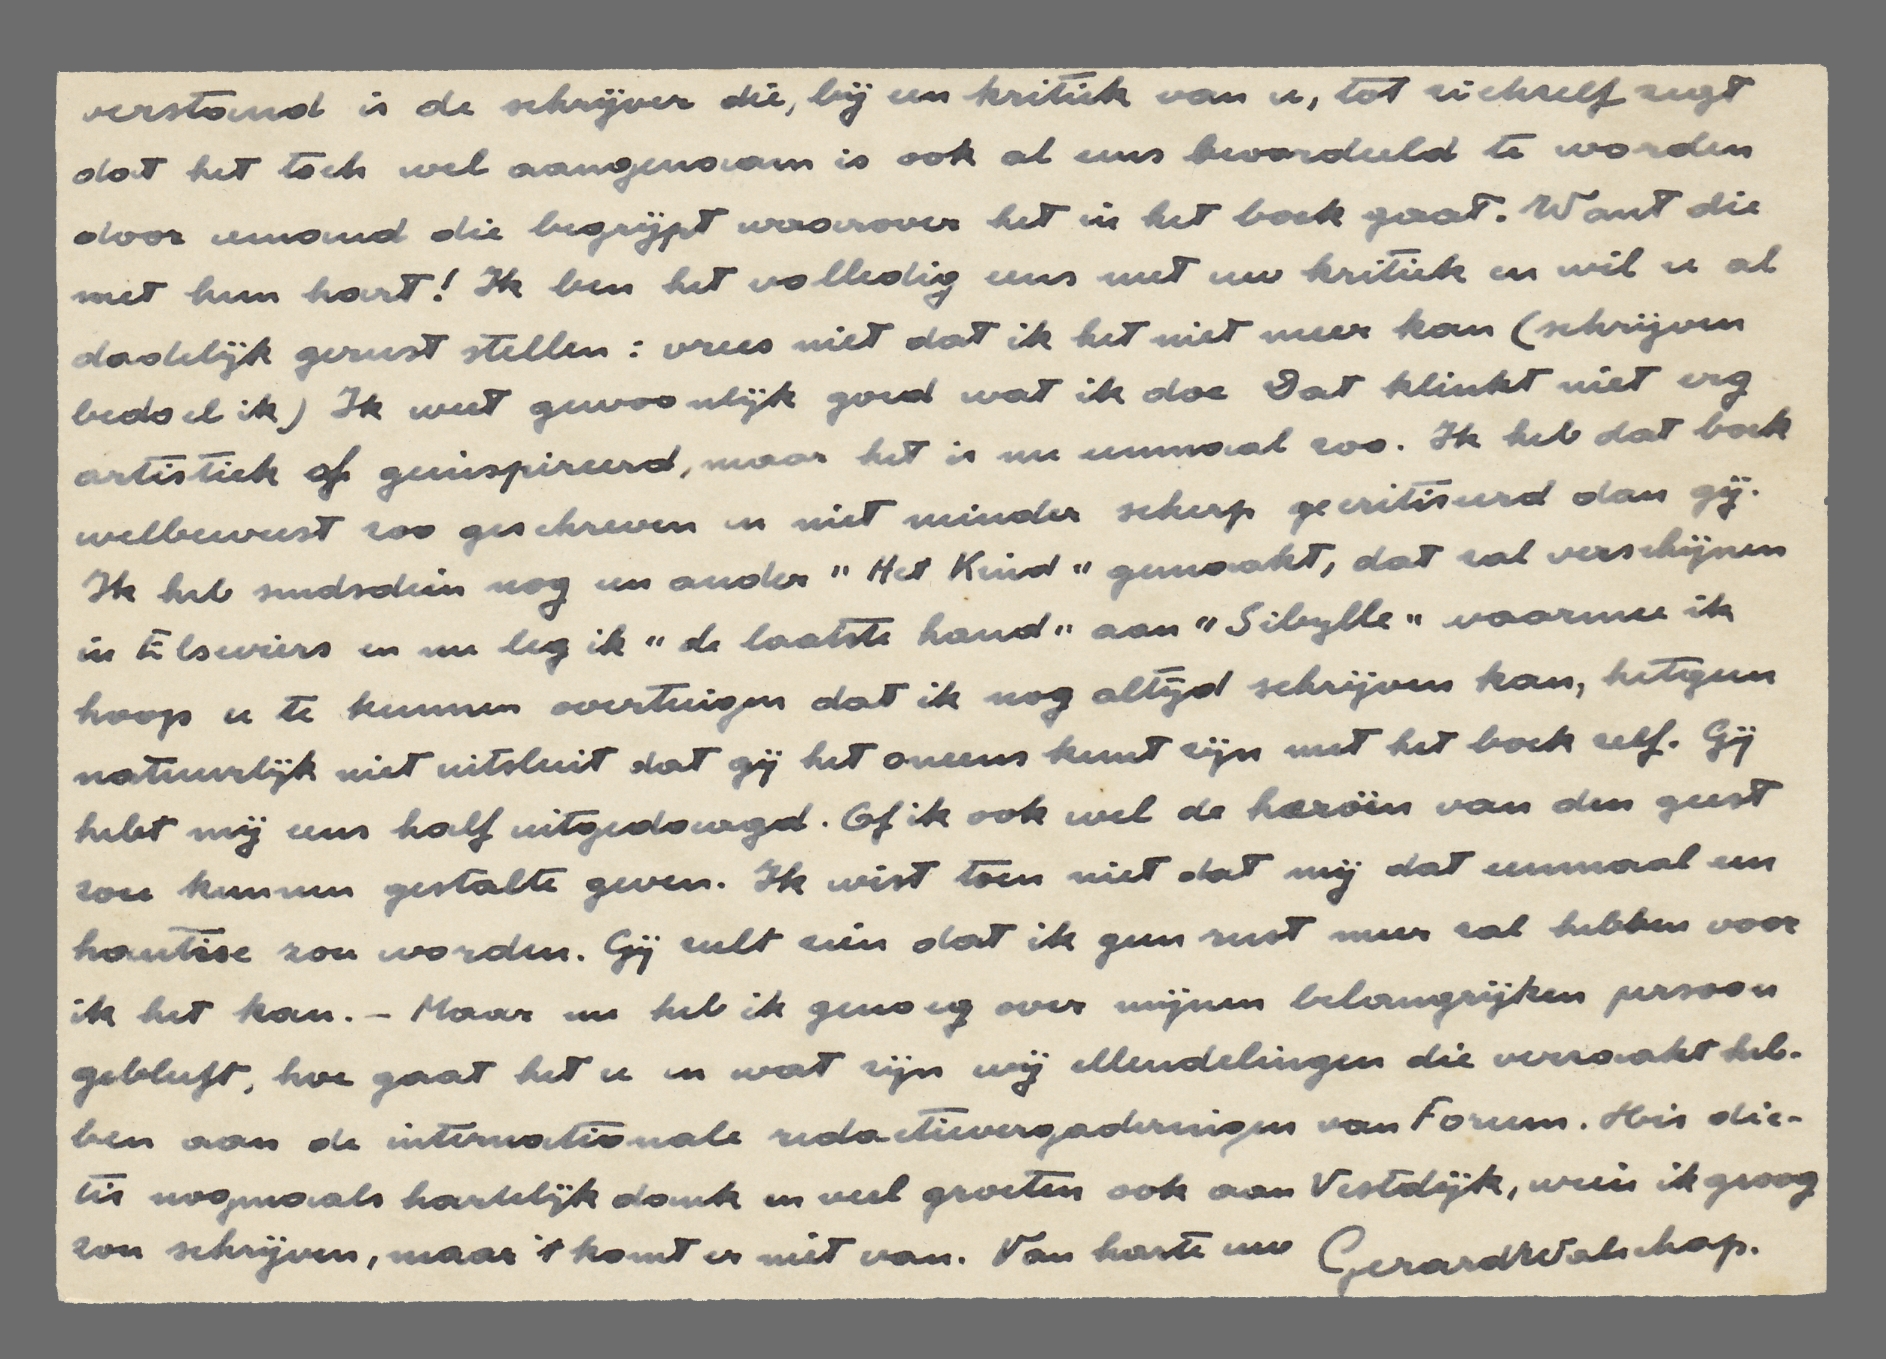 verstand is de schrijver die, bij een kritiek van u, tot zichzelf zegt
dat het toch wel aangenaam is ook al eens beoordeeld te worden
door iemand die begrijpt waarover het in het boek gaat. Want die
met hun hart! Ik ben het volledig eens met uw kritiek en wil u al
dadelijk gerust stellen: vrees niet dat ik het niet meer kan (schrijven
bedoel ik) Ik weet gewoonlijk goed wat ik doe Dat klinkt niet erg
artistiek of geinspireerd, maar het is nu eenmaal zoo. Ik heb dat boek
welbewust zoo geschreven en niet minder scherp gecritiseerd dan gij.
Ik heb sindsdien nog een ander "Het Kind" gemaakt, dat zal verschijnen
in Elseviers en nu leg ik "de laatste hand" aan "Sibylle" waarmee ik
hoop u te kunnen overtuigen dat ik nog altijd schrijven kan, hetgeen
natuurlijk niet uitsluit dat gij het oneens kunt zijn met het boek zelf. Gij
hebt mij eens half uitgedaagd. Of ik ook wel de heroïn van den geest
zou kunnen gestalte geven. Ik wist toen niet dat mij dat eenmaal een
hantise zou worden. Gij zult zien dat ik geen rust meer zal hebben voor
ik het kan. – Maar nu heb ik genoeg over mijnen belangrijken persoon
gebluft, hoe gaat het u en wat zijn wij ellendelingen die verzaakt heb-
ben aan de internationale redactievergaderingen van Forum. His dic-
tis nogmaals hartelijk dank en veel groeten ook aan Vestdijk, wien ik graag
zou schrijven, maar 't komt er niet van. Van harte uw Gerard Walschap.